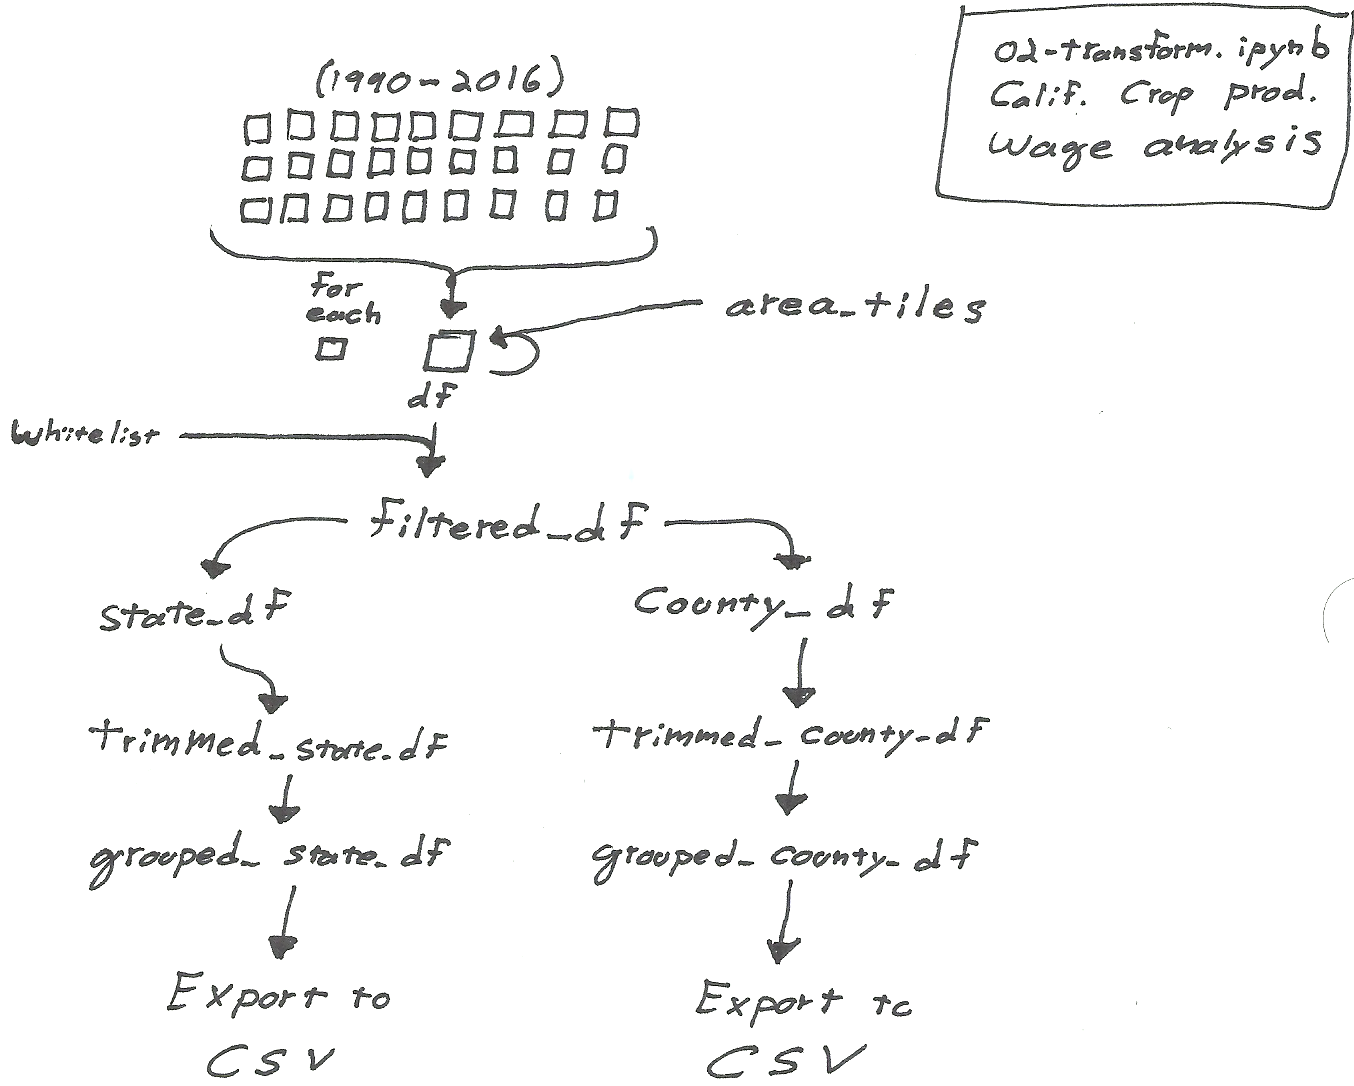 02-transform.ipynb
Calif. Crop prod.
Wage analysis
(1990-2016)
for
each
area_tiles
df
Whitelist
filtered_df
state_df
County_df
trimmed_state_df
trimmed_county_df
grouped_state_df
grouped_county_df
Export to
CSV
Export to
CSV